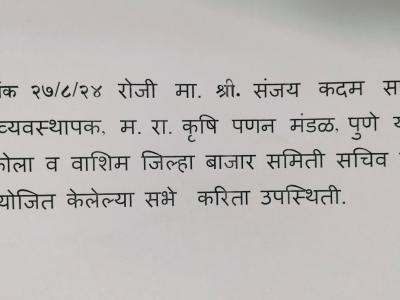 ंक २७/८/२४ रोजी मा. श्री. संजय कदम सा
व्यवस्थापक, म. रा. कृषि पणन मंडळ, पुणे य
ोला व वाशिम जिल्हा बाजार समिती सचिव
योजित केलेल्या सभे करिता उपस्थिती.